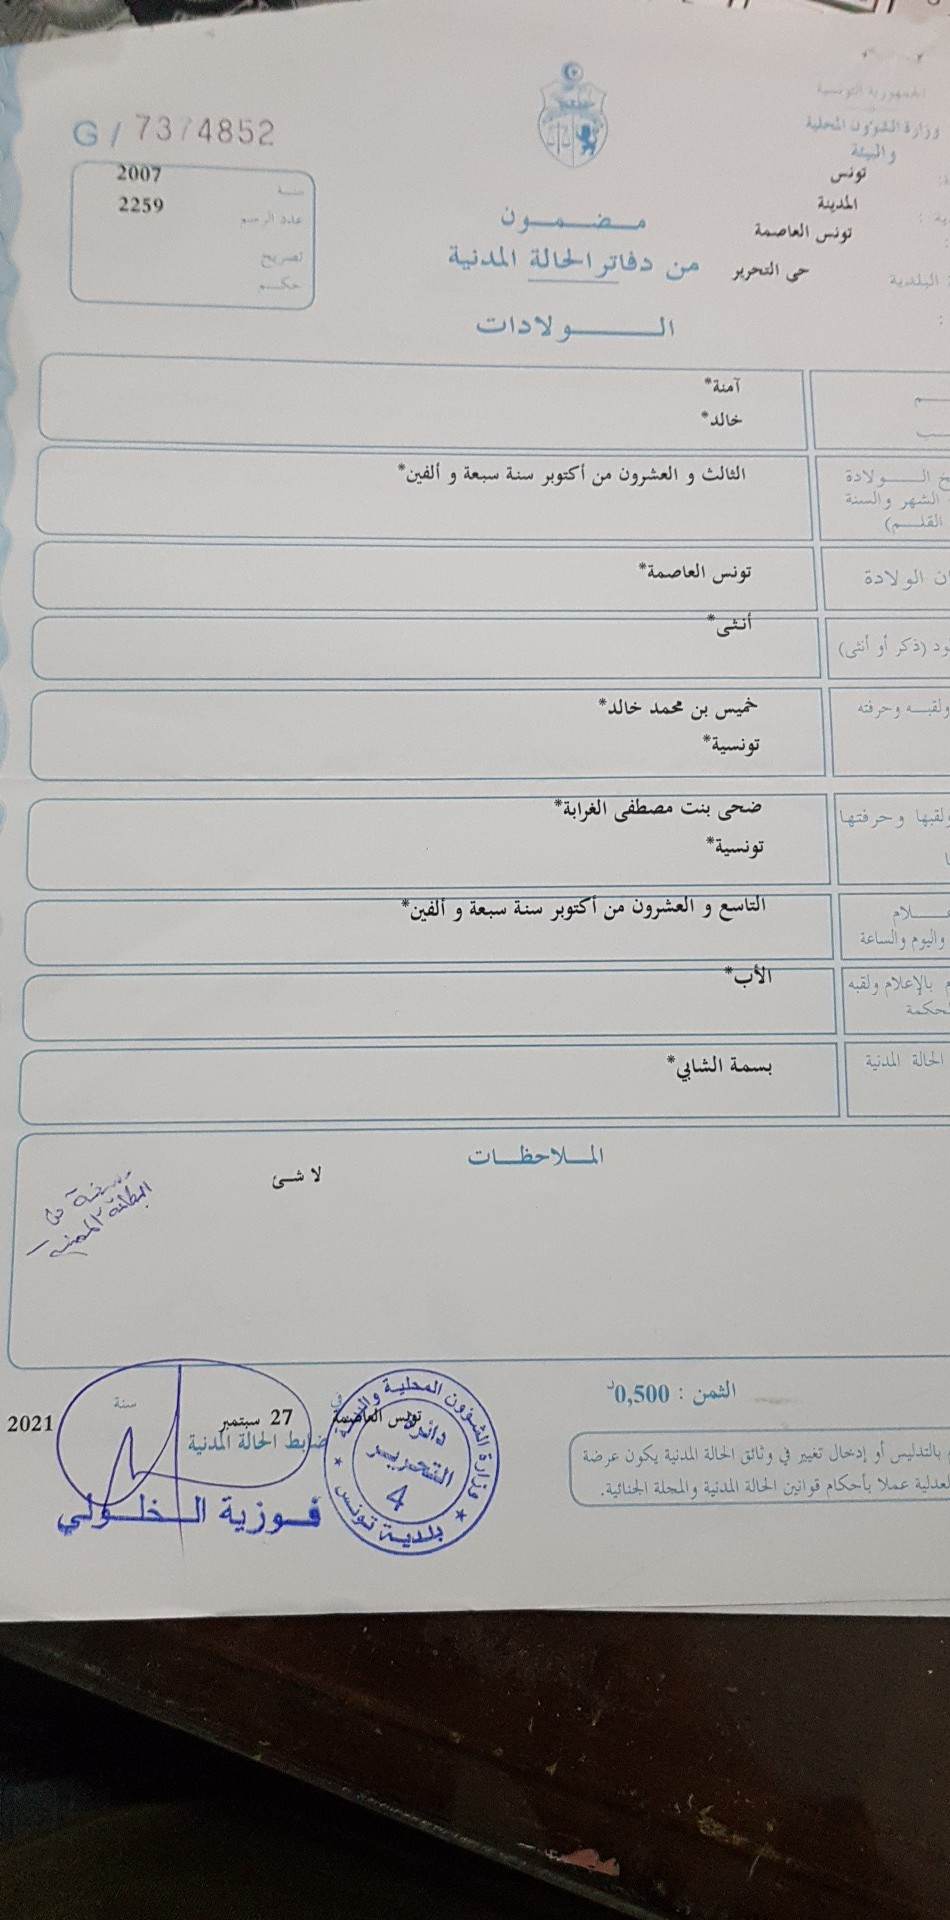 الجمهورية التونسية
وزارة الشؤون المحلية
والبيئة
تونس
المدينة
تونس العاصمة
البلدية
حي التحرير
G / 7374852
سنة 2007
عدد الرسم 2259
تصريح
حكم
مضمون
من دفاتر الحالة المدنية
الولادات
آمنة*
خالد*
الولادة
الثالث و العشرون من أكتوبر سنة سبعة و ألفين*
الشهر والسنة
القلم)
الولادة
تونس العاصمة*
أنثى*
(ذكر أو أنثى)
ولقبه وحرفته
خميس بن محمد خالد*
تونسية*
ولقبها وحرفتها
ضحى بنت مصطفى الغرابة*
تونسية*
التاسع و العشرون من أكتوبر سنة سبعة و ألفين*
واليوم والساعة
بالإعلام ولقبه
الأب*
الحالة المدنية
بسمة الشابي*
الملاحظات
لا شئ
نسخة من
الثمن : 0,500د
بالتدليس أو إدخال تغيير في وثائق الحالة المدنية يكون عرضة
عملا بأحكام قوانين الحالة المدنية والمجلة الجنائية.
تونس العاصمة في 27 سبتمبر سنة 2021
ضابط الحالة المدنية
فوزية الخلولي
وزارة الشؤون المحلية والبيئة
دائرة
التحرير
4
بلدية تونس